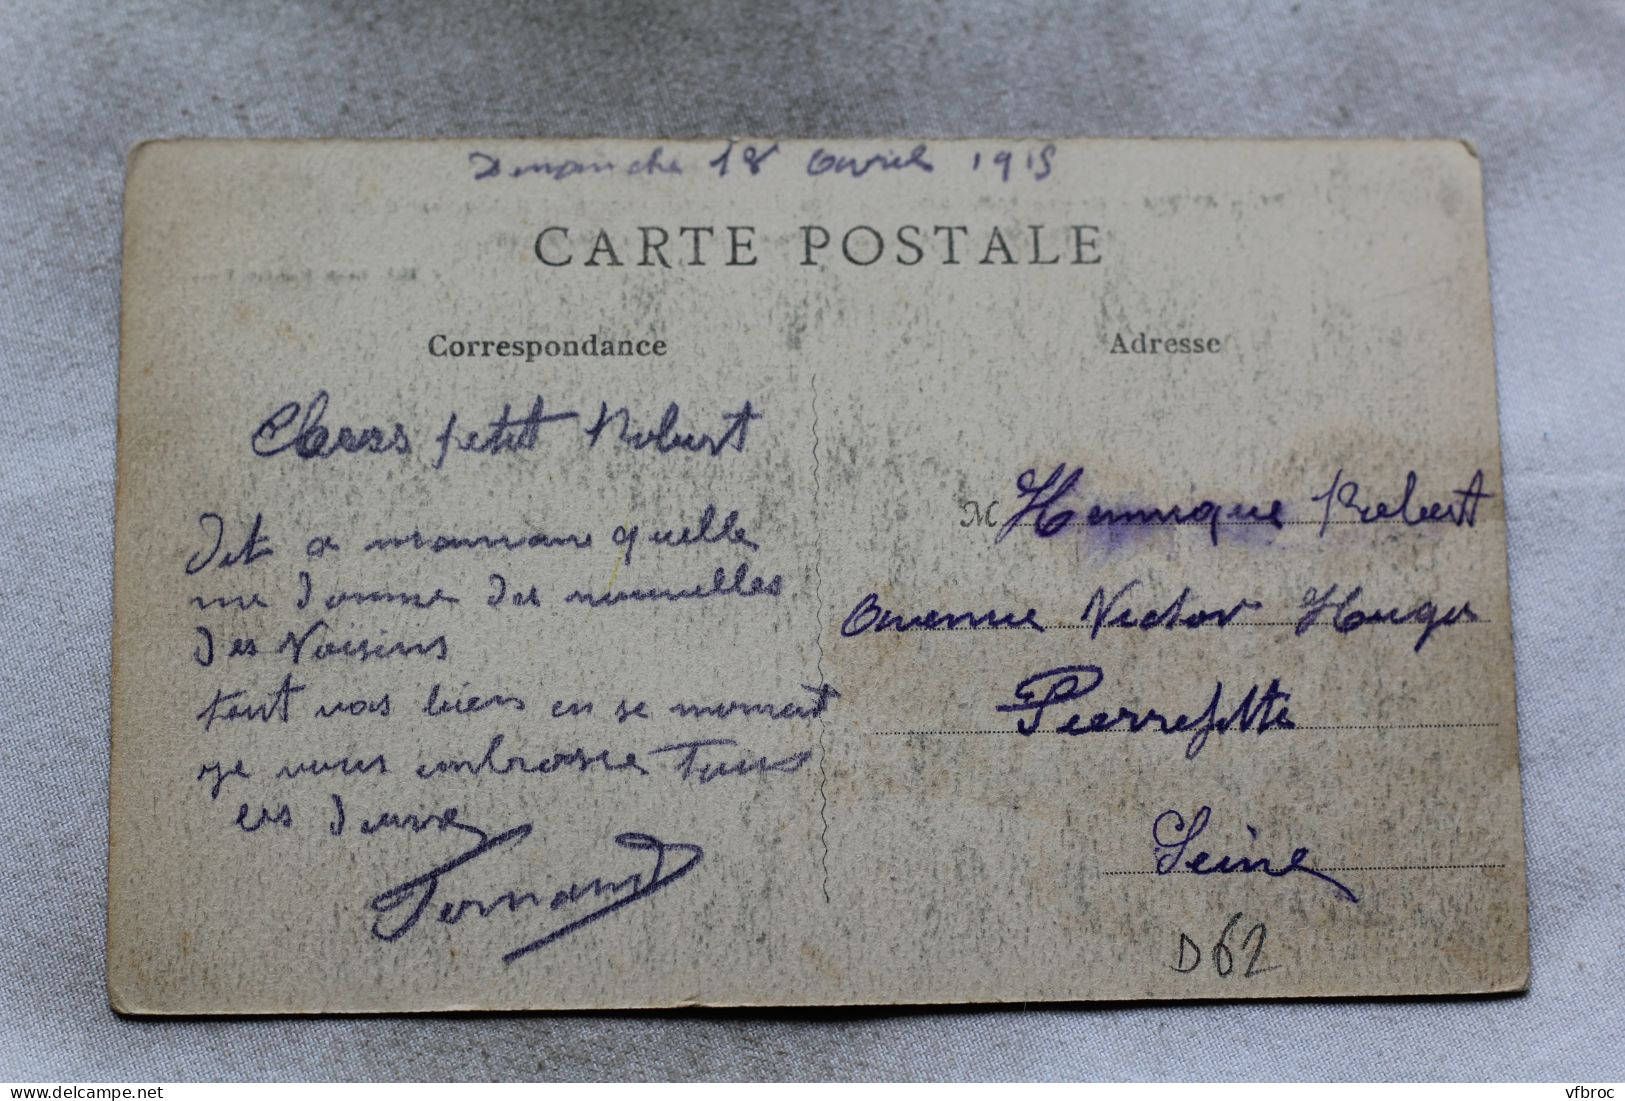 Dimanche 18 Avril 1915
CARTE POSTALE
Correspondance
Chers petit Robert
Dit a maman quelle
me donne des nouvelles
des Voisins
tout vas bien en se moment
je vous embrasse Tous
les deux
Fernand
Adresse
M Hennique Robert
Avenue Victor Hugo
Pierrefitte
Seine
D62
delcampe.net
vfbroc